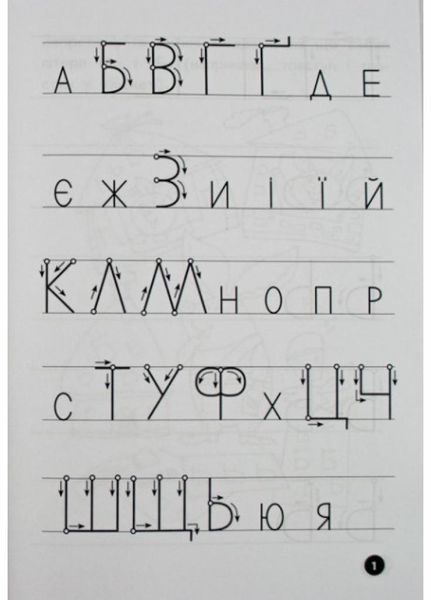 А Б В Г Ґ Д Е
Є Ж З И І Ї Й
К Л М Н О П Р
С Т У Ф Х Ц Ч
Ш Щ Ь Ю Я
1